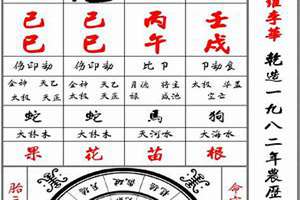 己 己 丙 壬
巳 巳 午 戌
伤印劫 伤印劫 比卩 卩劫食
金神 天乙 金神 天乙 月德 将星 太极 华盖
太极 天巫 太极 天巫 禄 咸池 空亡
蛇 蛇 馬 狗
大林木 大林木 天河水 大海水
果 花 苗 根
李華 乾造一九八二年農歷
胎
命